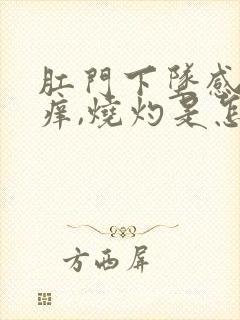 肛門下墜感
痒,燒灼是怎
方西屏